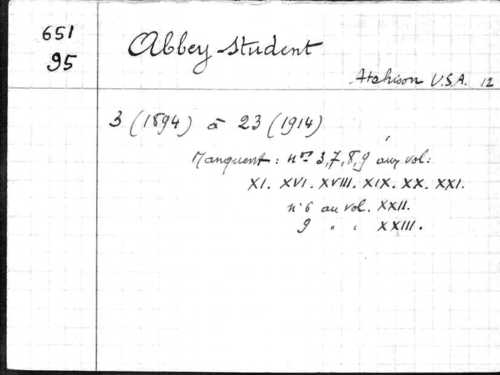 651
95
Abbey student
Atchison U.S.A. 12
3 (1894) à 23 (1914)
Manquent : nos 3, 7, 8, 9 aux vol :
XI. XVI. XVIII. XIX. XX. XXI.
n° 6 au vol. XXII.
9 " " XXIII.